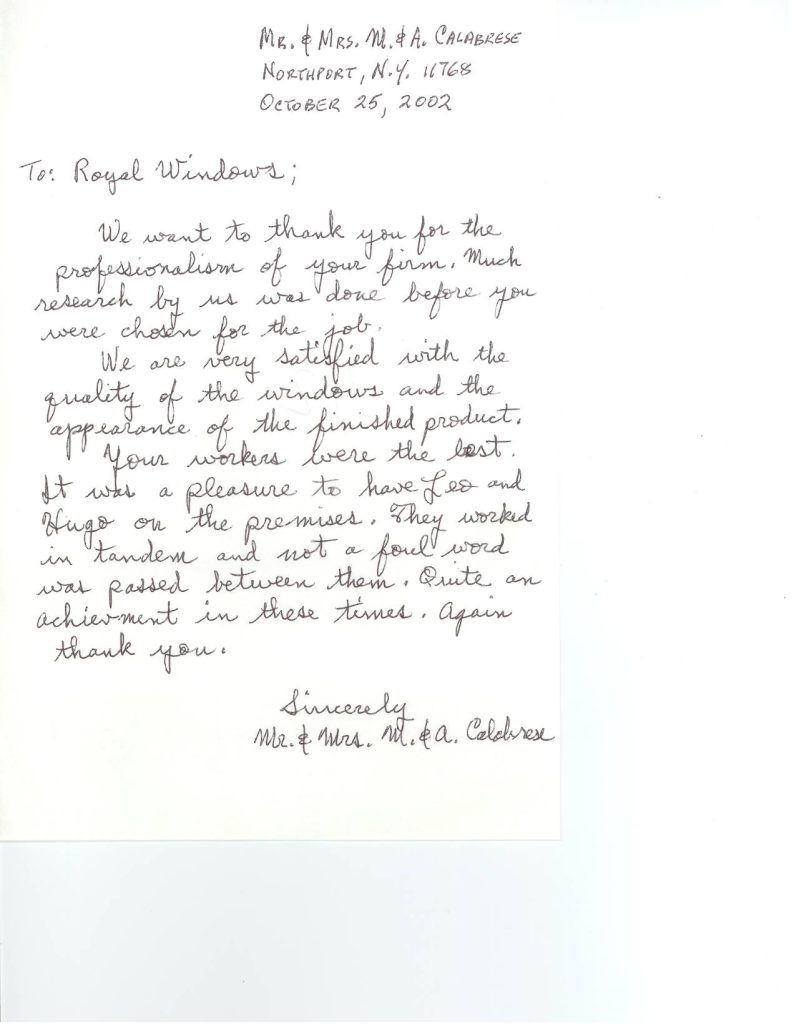 Mr. & Mrs. M. & A. Calabrese
Northport, N.Y. 11768
October 25, 2002
To: Royal Windows;
We want to thank you for the
professionalism of your firm. Much
research by us was done before you
were chosen for the job.
We are very satisfied with the
quality of the windows and the
appearance of the finished product.
Your workers were the best.
It was a pleasure to have Leo and
Hugo on the premises. They worked
in tandem and not a foul word
was passed between them. Quite an
achievment in these times. Again
thank you.
Sincerely
Mr. & Mrs. M. & A. Calabrese